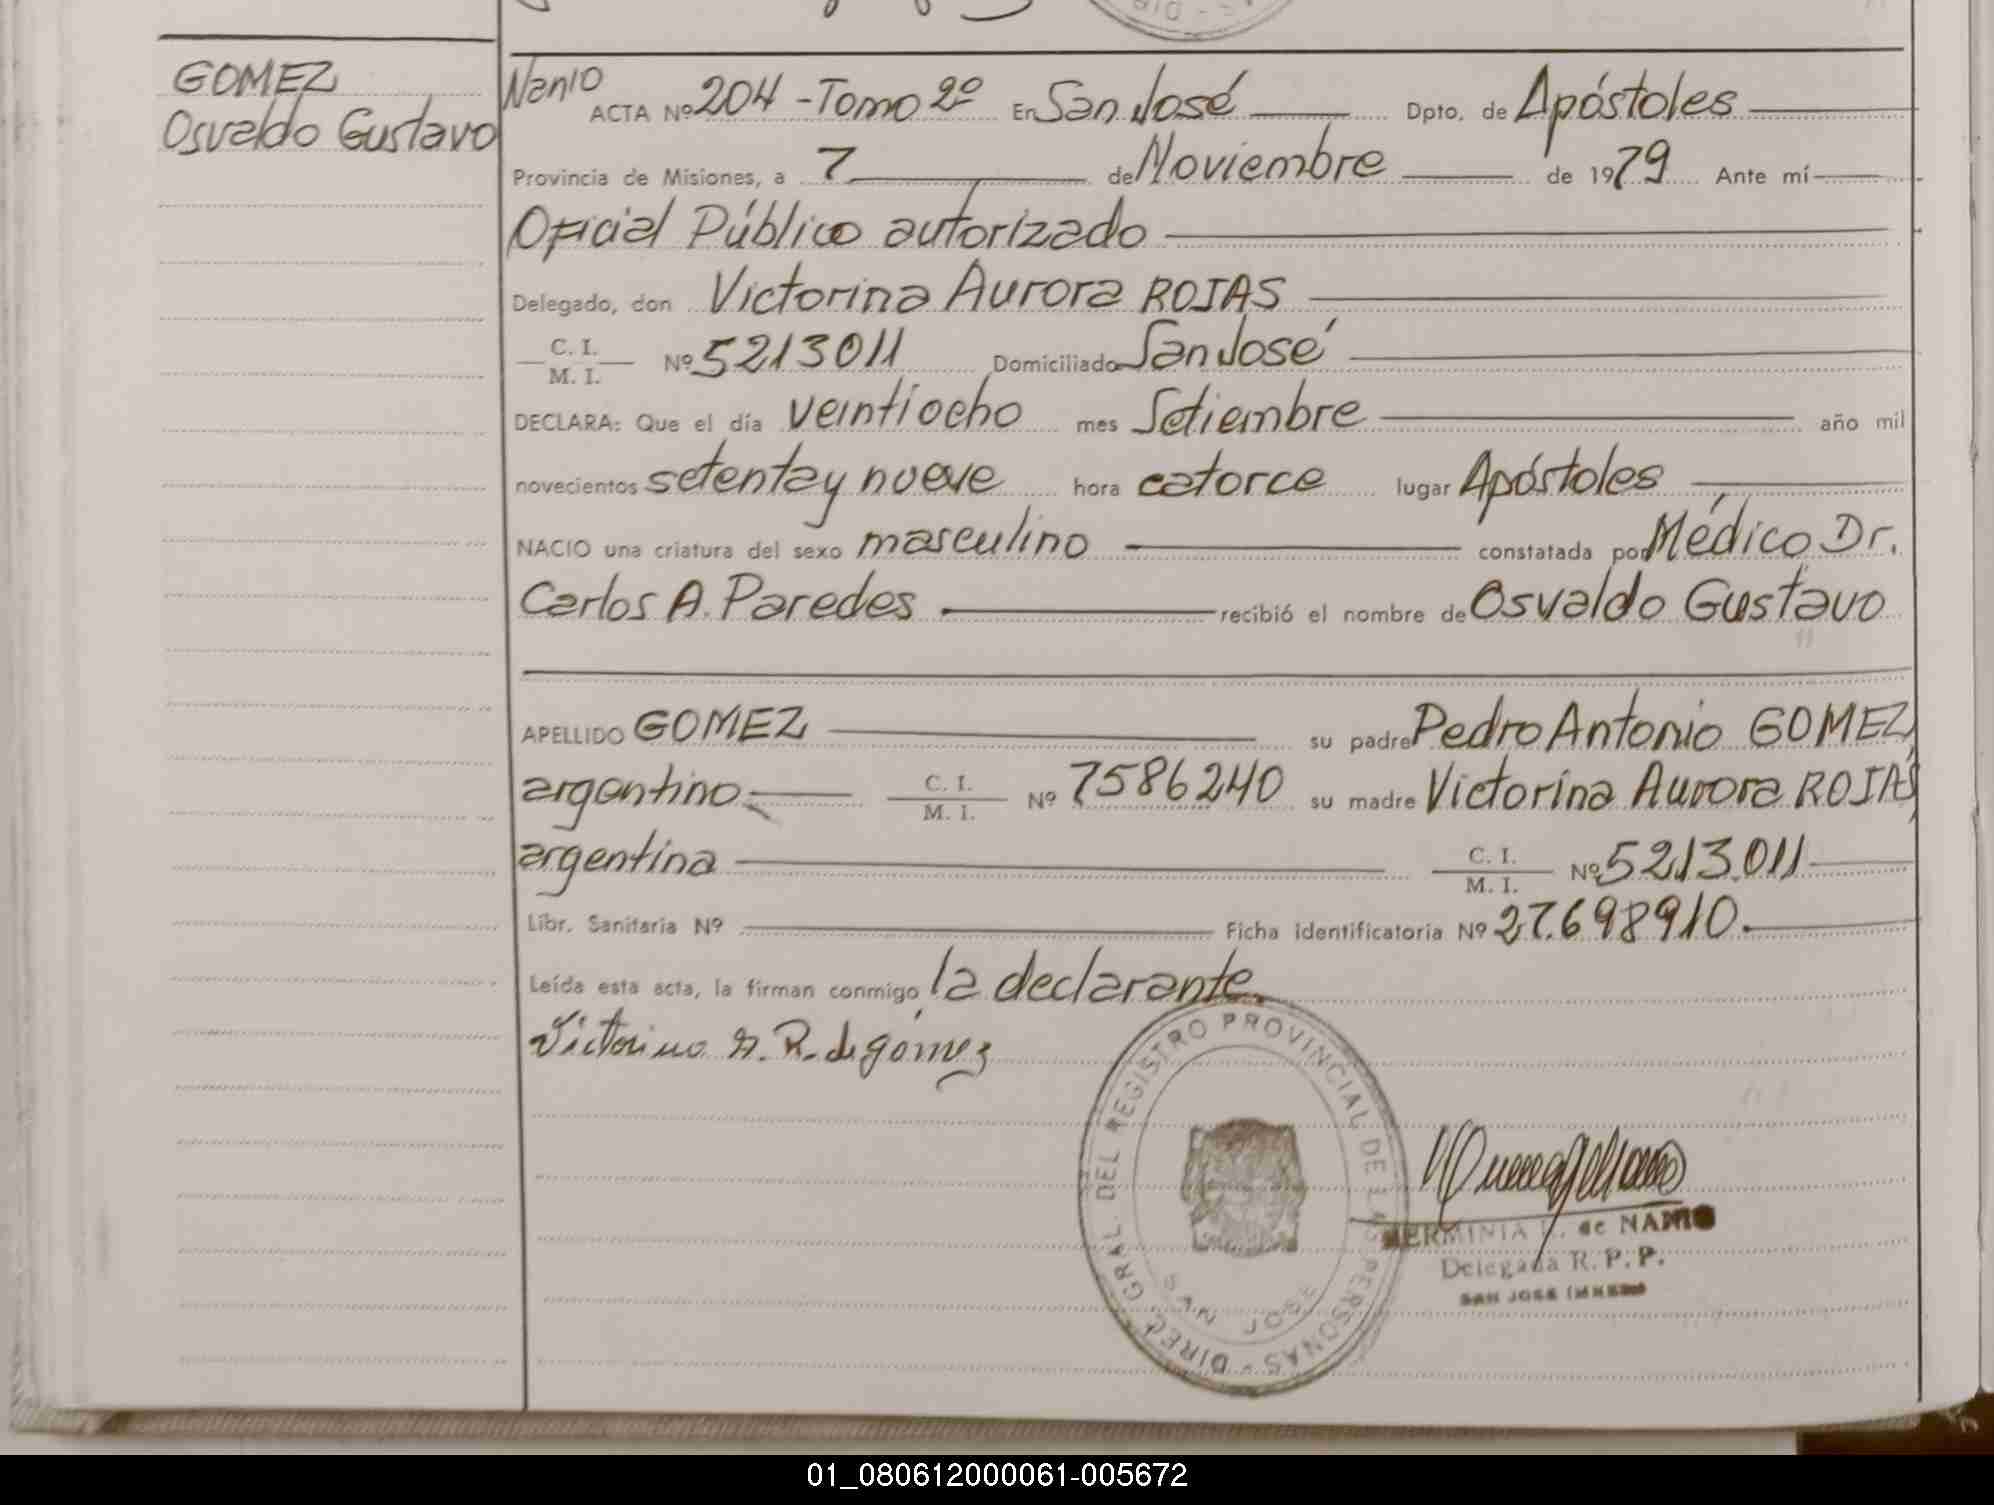 GOMEZ
Osvaldo Gustavo
Nanio
ACTA Nº 204 - Tomo 2º En San José Dpto. de Apóstoles
Provincia de Misiones, a 7 de Noviembre de 1979 Ante mí
Oficial Público autorizado
Delegado, don Victorina Aurora ROJAS
C. I.
M. I.
Nº 5213011 Domiciliado San José
DECLARA: Que el día veintiocho mes Setiembre año mil
novecientos setenta y nueve hora catorce lugar Apóstoles
NACIO una criatura del sexo masculino constatada por Médico Dr.
Carlos A. Paredes recibió el nombre de Osvaldo Gustavo
APELLIDO GOMEZ su padre Pedro Antonio GOMEZ,
argentino. C. I. M. I. Nº 7586240 su madre Victorina Aurora ROJAS,
argentina C. I. M. I. Nº 5213.011
Libr. Sanitaria Nº Ficha identificatoria Nº 27.698910.
Leída esta acta, la firman conmigo, la declarante.
Victorina A. R. de gómez
DIREC. GRAL. DEL REGISTRO PROVINCIAL DE LAS PERSONAS -
SAN JOSE
HERMINIA de NANIO
Delegada R. P. P.
SAN JOSE
01_080612000061-005672